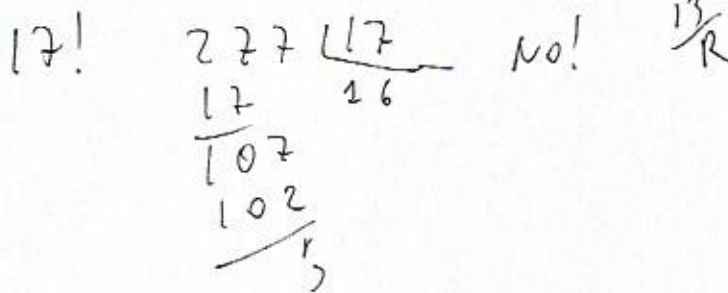 17! 277 17 No! 13/R
17 16
107
102
5